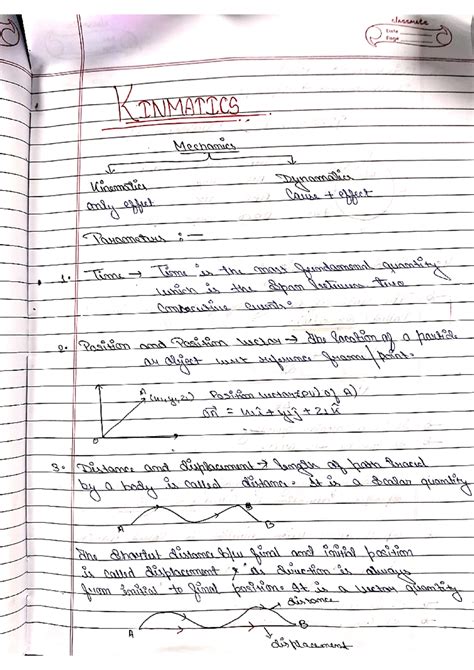 classmate
Date
Page
KINMATICS
Mechanics
Kinematics
Dynamatics
only effect
Cause + effect
Parameters :—
1. Time → Time is the most fundamental quantity
which is the span between two
consecutive events.
2. Position and Position vector → The location of a particle
or object w.r.t reference frame/point.
A (x,y,z) Position vector (PV) of A)
= xî + yĵ + zk̂
O
3. Distance and displacement → length of path traced
by a body is called distance. It is a scalar quantity
A B
The shortest distance b/w final and initial position
is called displacement & its direction is always
from initial to final position. It is a vector quantity
distance
A B
displacement